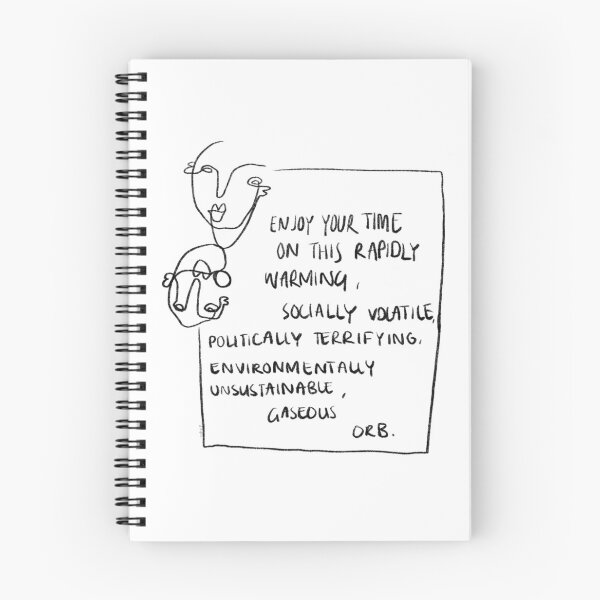 ENJOY YOUR TIME
ON THIS RAPIDLY
WARMING,
SOCIALLY VOLATILE,
POLITICALLY TERRIFYING,
ENVIRONMENTALLY
UNSUSTAINABLE,
GASEOUS
ORB.